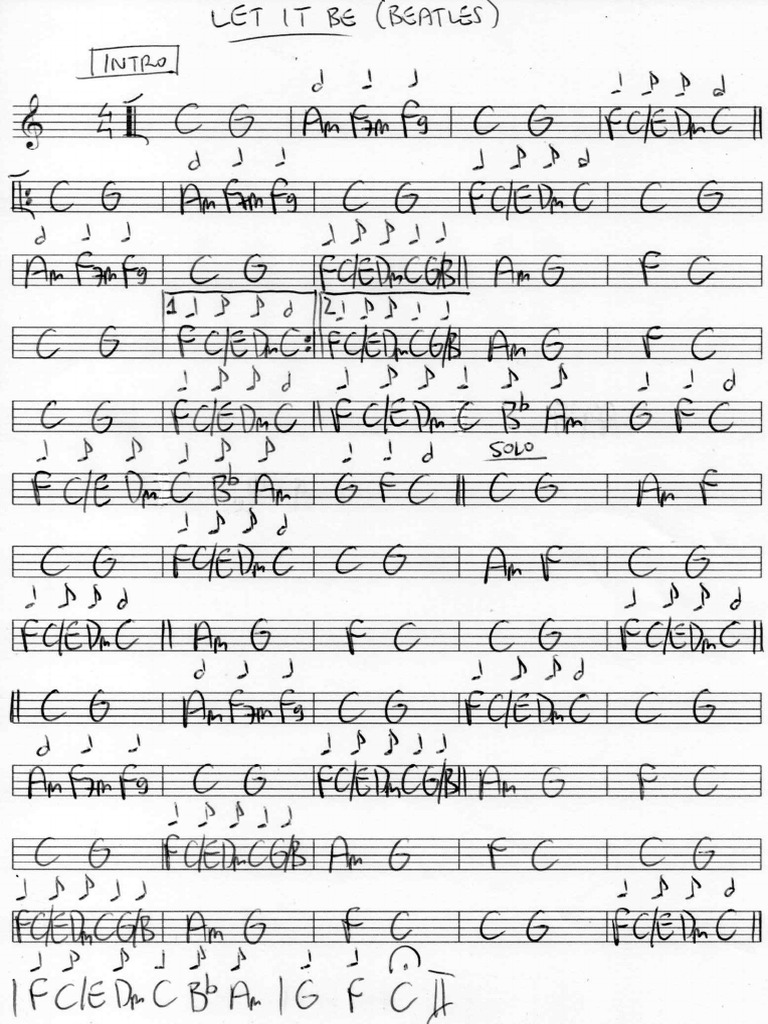 LET IT BE (BEATLES)
INTRO
4/4 C G | Am F7m F9 | C G | F C/E Dm C ||
C G | Am F7m F9 | C G | F C/E Dm C | C G
Am F7m F9 | C G | F C/E Dm C G/B || Am G | F C
1 2
C G | F C/E Dm C :|| F C/E Dm C G/B | Am G | F C
C G | F C/E Dm C || F C/E Dm C Bb Am | G F C
SOLO
F C/E Dm C Bb Am | G F C || C G | Am F
C G | F C/E Dm C | C G | Am F | C G
F C/E Dm C || Am G | F C | C G | F C/E Dm C ||
|| C G | Am F7m F9 | C G | F C/E Dm C | C G
Am F7m F9 | C G | F C/E Dm C G/B || Am G | F C
C G | F C/E Dm C G/B | Am G | F C | C G
F C/E Dm C G/B | Am G | F C | C G | F C/E Dm C ||
| F C/E Dm C Bb Am | G F C ||